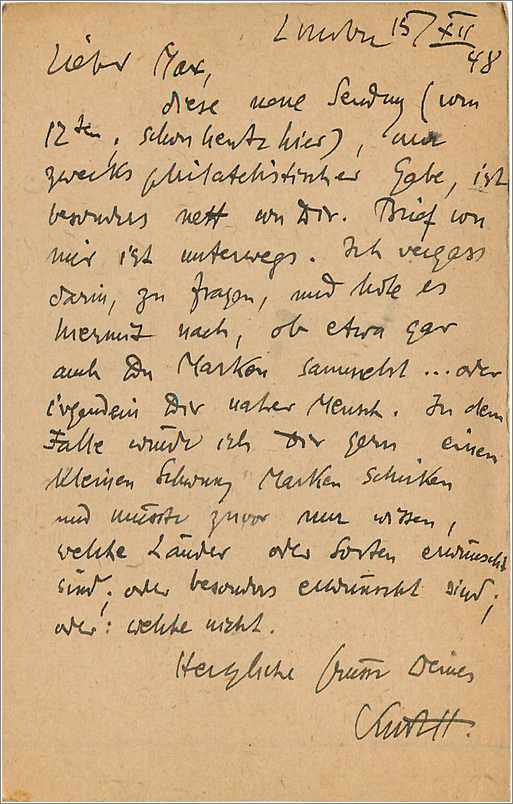 London 15/XII
48
Lieber Max,
diese neue Sendung (vom
12ten, schon heute hier), nur
zwecks philatelistischer Gabe, ist
besonders nett von Dir. Brief von
mir ist unterwegs. Ich vergass
darin, zu fragen, und hole es
hiermit nach, ob etwa gar
auch Du Marken sammelst ... oder
irgendein Dir naher Mensch. In dem
Falle würde ich Dir gern einen
kleinen Schwung Marken schicken
und müsste zuvor nur wissen,
welche Länder oder Sorten erwünscht
sind; oder besonders erwünscht sind;
oder: welche nicht.
Herzliche Grüsse Deines